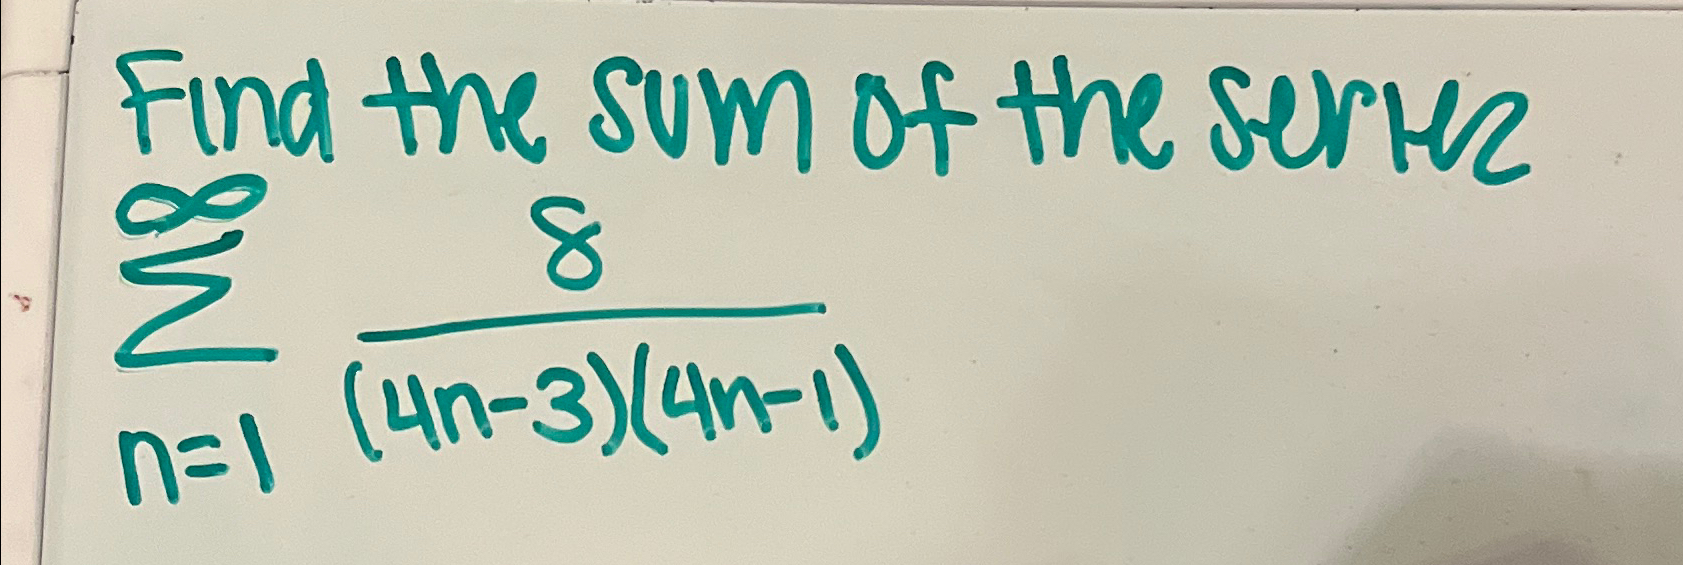 Find the sum of the series
∞
∑ 8
n=1 (4n-3)(4n-1)